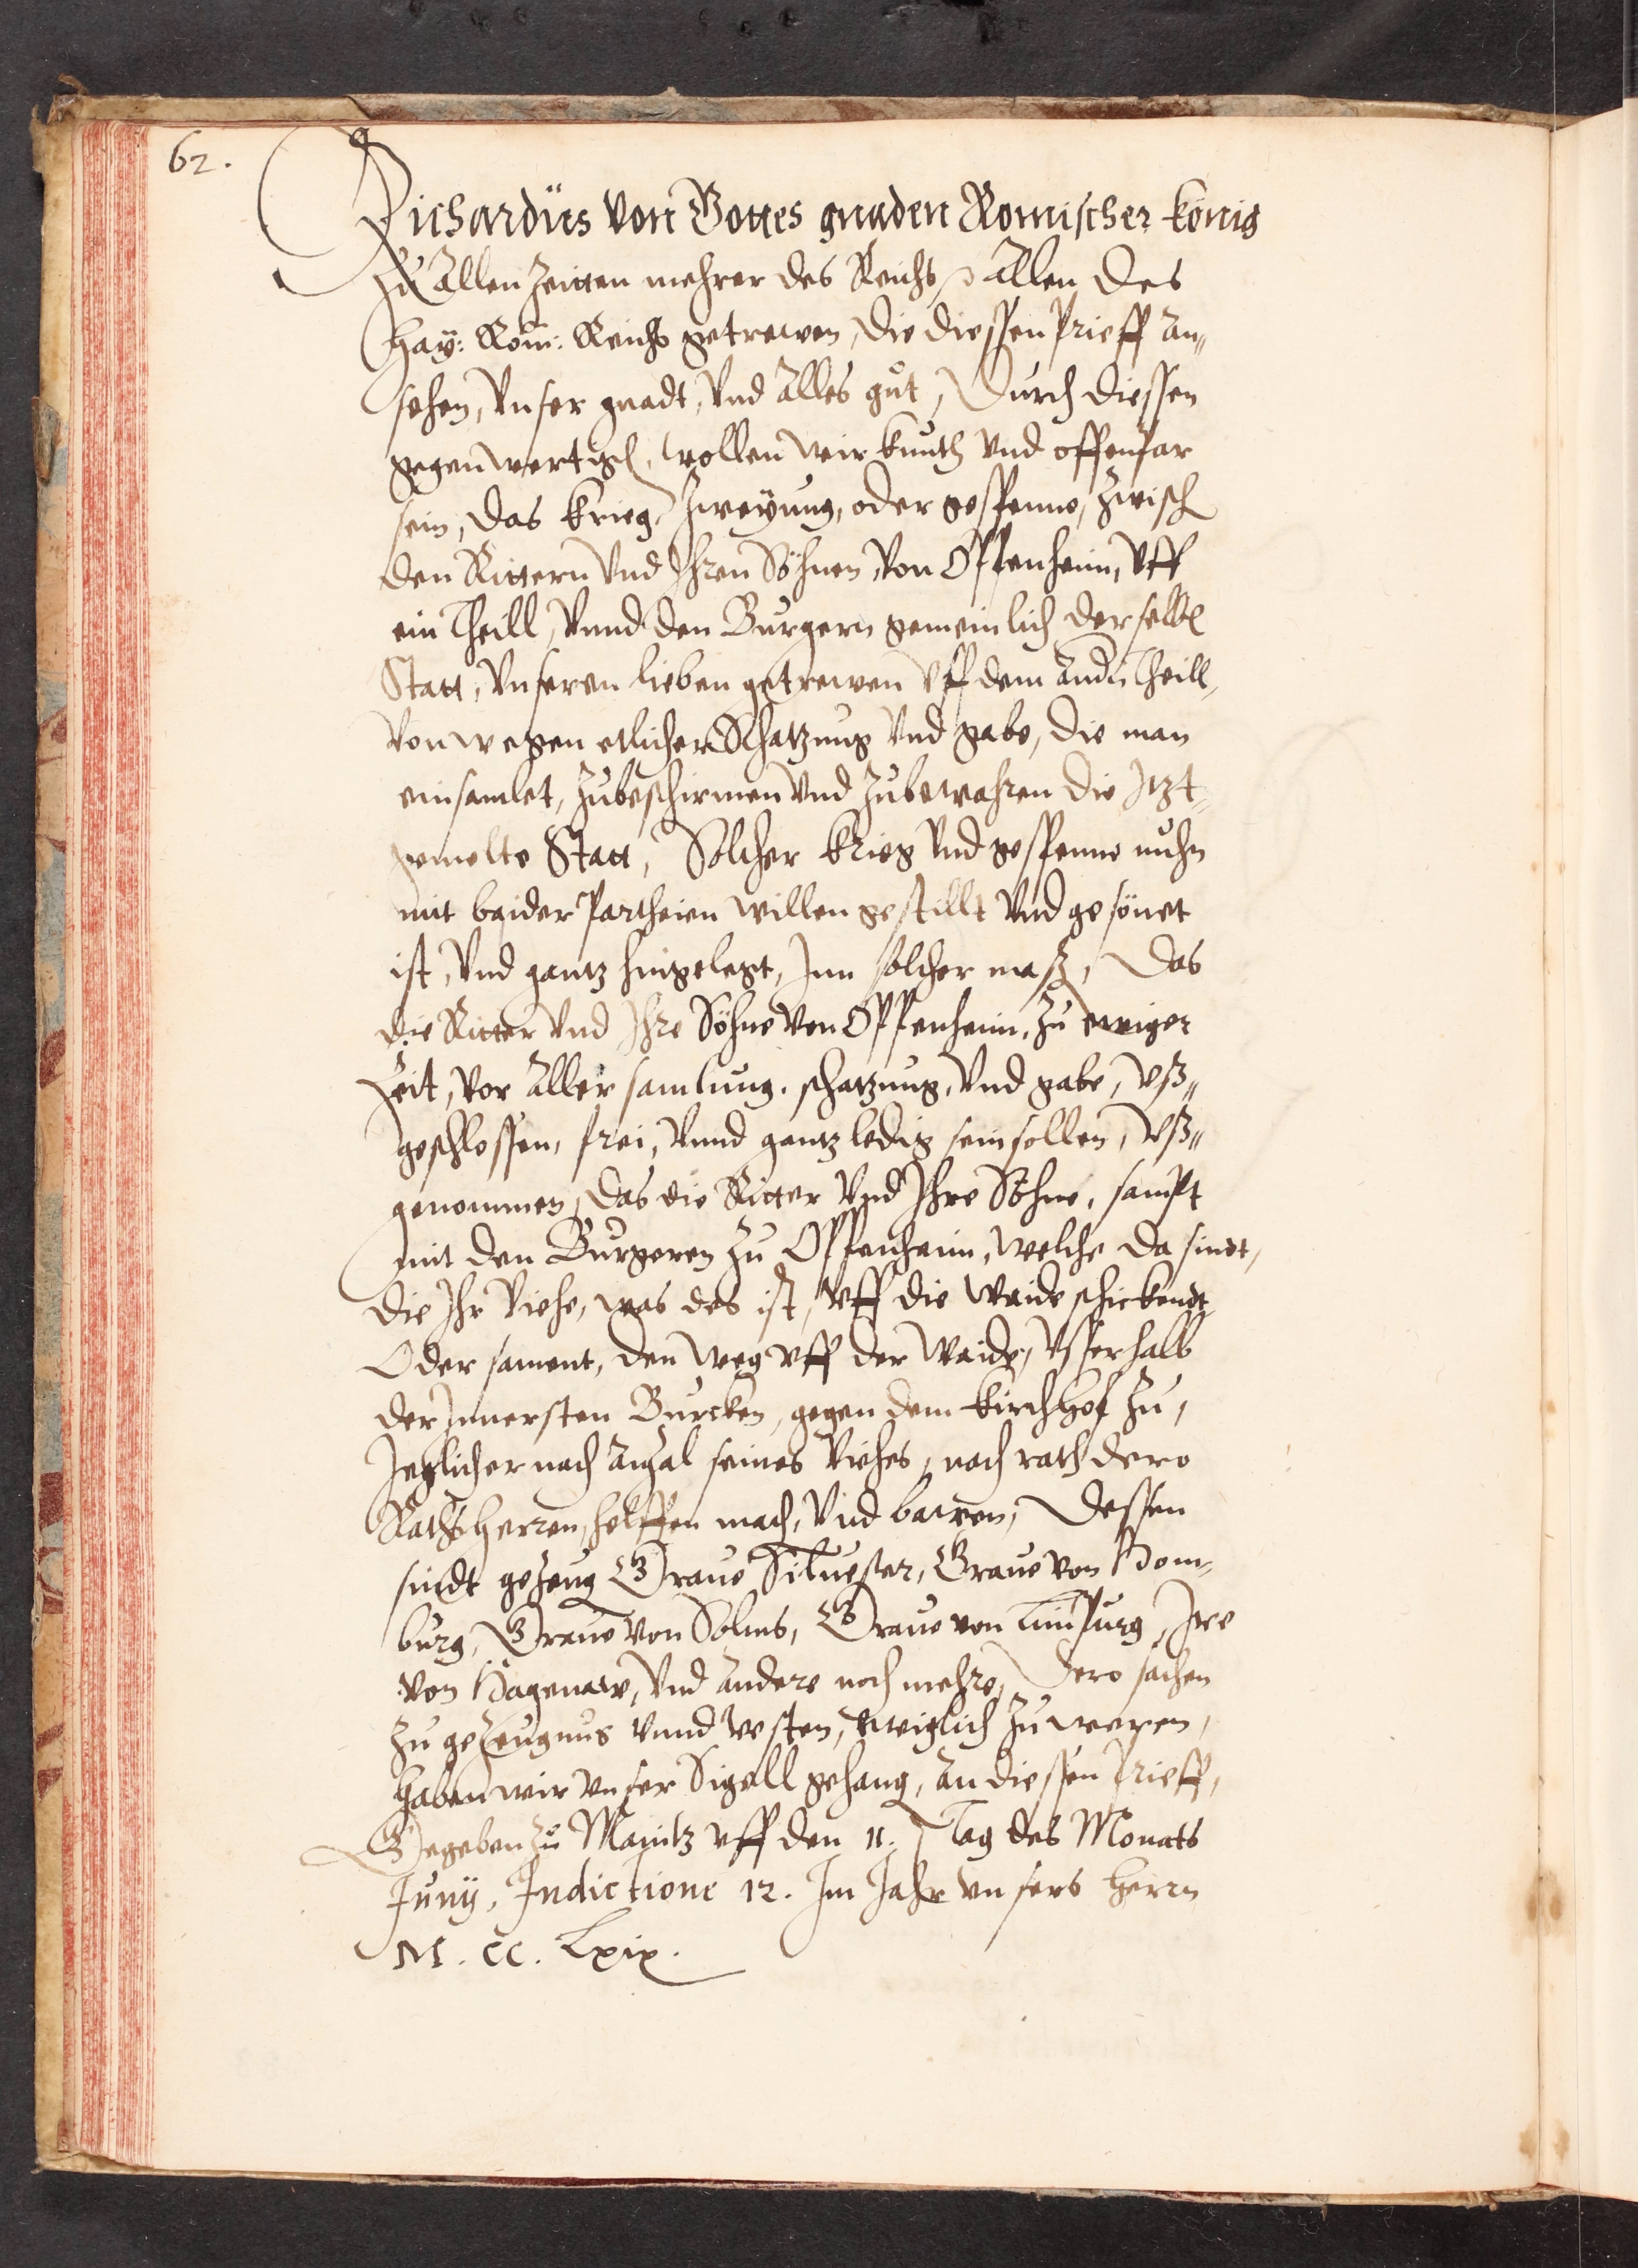 62.
Richardus von Gottes gnaden Romischer König
Zu Allen Zeitten mehrer des Reichs, Allen des
Hay: Röm: Reichs getrewen, die diessen Brieff an„
sehen, Unser gnadt, Und Alles gut, Durch diessen
gegenwertigl, wollen wir kunth Und offenbar
sein, das krieg, Zweÿung, oder gespenne, Zwisch
den Rittern Und Ihren Söhnen, Von Oppenheim, Uff
ein Theill, Unnd den Burgern gemeinlich derselb
Statt, Unseren lieben getrewen Uff dem Andn Theill,
Von wegen etlicher Schatzung Und gabe, die man
einsamlet, Zubeschirmen Und Zubewahren die Jtzt
gemelte Statt, Solcher krieg Und gespenne nuhn
mit baider Partheien willen gestillt Und gesönet
ist, Und gantz hingelegt, Jnn solcher maß, Das
die Ritter Und Ihre Söhne Von Oppenheim, Zu ewiger
Zeit, Vor Aller samlung, schatzung, Und gabe, Uß„
geschlossen, frei, Unnd gantz ledig sein sollen, Uß„
genommen, Das die Ritter Und Ihre Söhne, sampt
mit den Burgeren Zu Oppenheim, welche da sindt,
die Ihr Viehe, was des ist, Uff die Waide schickendt
Oder sament, den weg uff der Waide, Usserhalb
der Jnnersten Burcken, gegen dem Kirchhof Zu,
Jeglicher nach Anzal seines Viehes, nach rath dero
Rathsherren, helffen mach, Und bawen, Dessen
sindt gezeug Graue Siluester, Graue von Hom„
burg, Graue Von Solms, Graue von Limpurg,
von Hagenaw, Und Andere noch mehre, Dero sachen
Zu gezeugnus Unnd Vesten, Ewiglich Zu weren,
Haben wir Unser Sigell gehang, An diessen Brieff,
Gegeben Zu Mayntz uff den 11. Tag des Monats
Junij, Indictione 12. Im Jahr unsers Herrn
M. CC. Lxix.